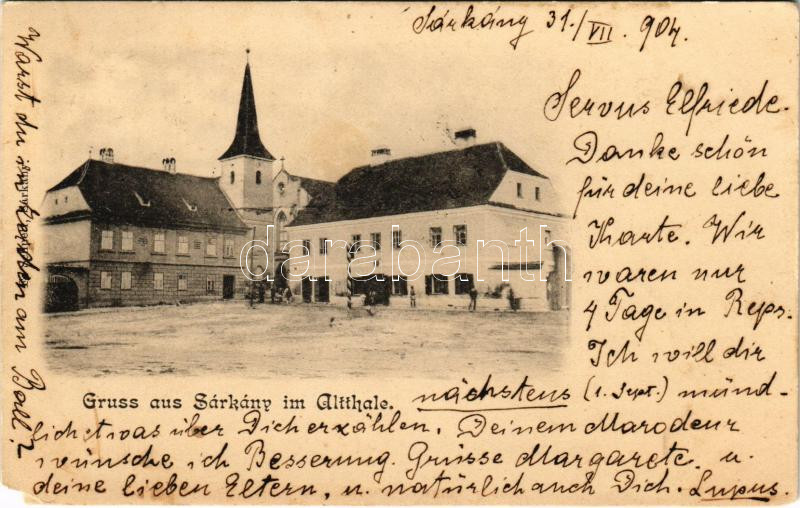 Sárkány 31./VII. 904.
Servus Elfriede.
Danke schön
für deine liebe
Karte. Wir
waren nur
4 Tage in Reps.
Ich will dir
nächstens (1. Sept.) münd-
lich etwas über Dich erzählen. Deinem Marodeur
wünsche ich Besserung. Grüsse Margarete, u.
deine lieben Eltern, u. natürlich auch Dich. Lupus.
Warst du in am Ball?
Gruss aus Sárkány im Altthale.
darabanth